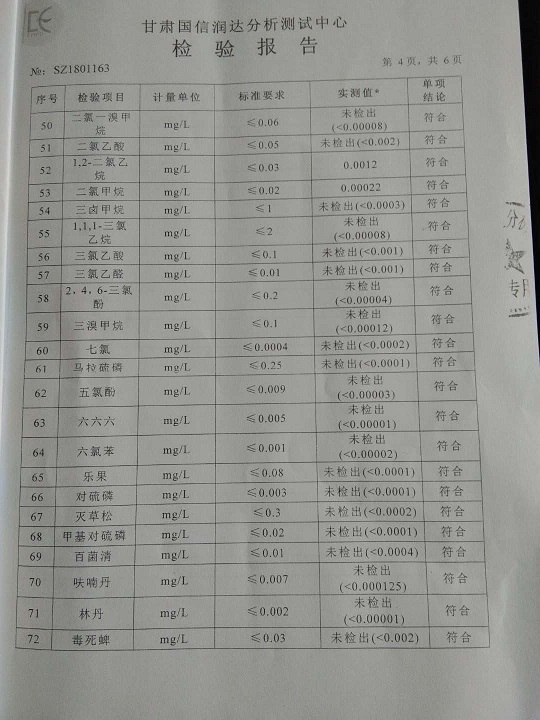 甘肃国信润达分析测试中心
检验报告
№: SZ1801163
第 4页, 共 6页
序号 检验项目 计量单位 标准要求 实测值* 单项结论
50 二氯一溴甲烷 mg/L ≤0.06 未检出(<0.00008) 符合
51 二氯乙酸 mg/L ≤0.05 未检出(<0.002) 符合
52 1,2-二氯乙烷 mg/L ≤0.03 0.0012 符合
53 二氯甲烷 mg/L ≤0.02 0.00022 符合
54 三卤甲烷 mg/L ≤1 未检出(<0.0003) 符合
55 1,1,1-三氯乙烷 mg/L ≤2 未检出(<0.00008) 符合
56 三氯乙酸 mg/L ≤0.1 未检出(<0.001) 符合
57 三氯乙醛 mg/L ≤0.01 未检出(<0.001) 符合
58 2, 4, 6-三氯酚 mg/L ≤0.2 未检出(<0.00004) 符合
59 三溴甲烷 mg/L ≤0.1 未检出(<0.00012) 符合
60 七氯 mg/L ≤0.0004 未检出(<0.0002) 符合
61 马拉硫磷 mg/L ≤0.25 未检出(<0.0001) 符合
62 五氯酚 mg/L ≤0.009 未检出(<0.00003) 符合
63 六六六 mg/L ≤0.005 未检出(<0.00001) 符合
64 六氯苯 mg/L ≤0.001 未检出(<0.00002) 符合
65 乐果 mg/L ≤0.08 未检出(<0.0001) 符合
66 对硫磷 mg/L ≤0.003 未检出(<0.0001) 符合
67 灭草松 mg/L ≤0.3 未检出(<0.0002) 符合
68 甲基对硫磷 mg/L ≤0.02 未检出(<0.0001) 符合
69 百菌清 mg/L ≤0.01 未检出(<0.0004) 符合
70 呋喃丹 mg/L ≤0.007 未检出(<0.000125) 符合
71 林丹 mg/L ≤0.002 未检出(<0.00001) 符合
72 毒死蜱 mg/L ≤0.03 未检出(<0.002) 符合
专用